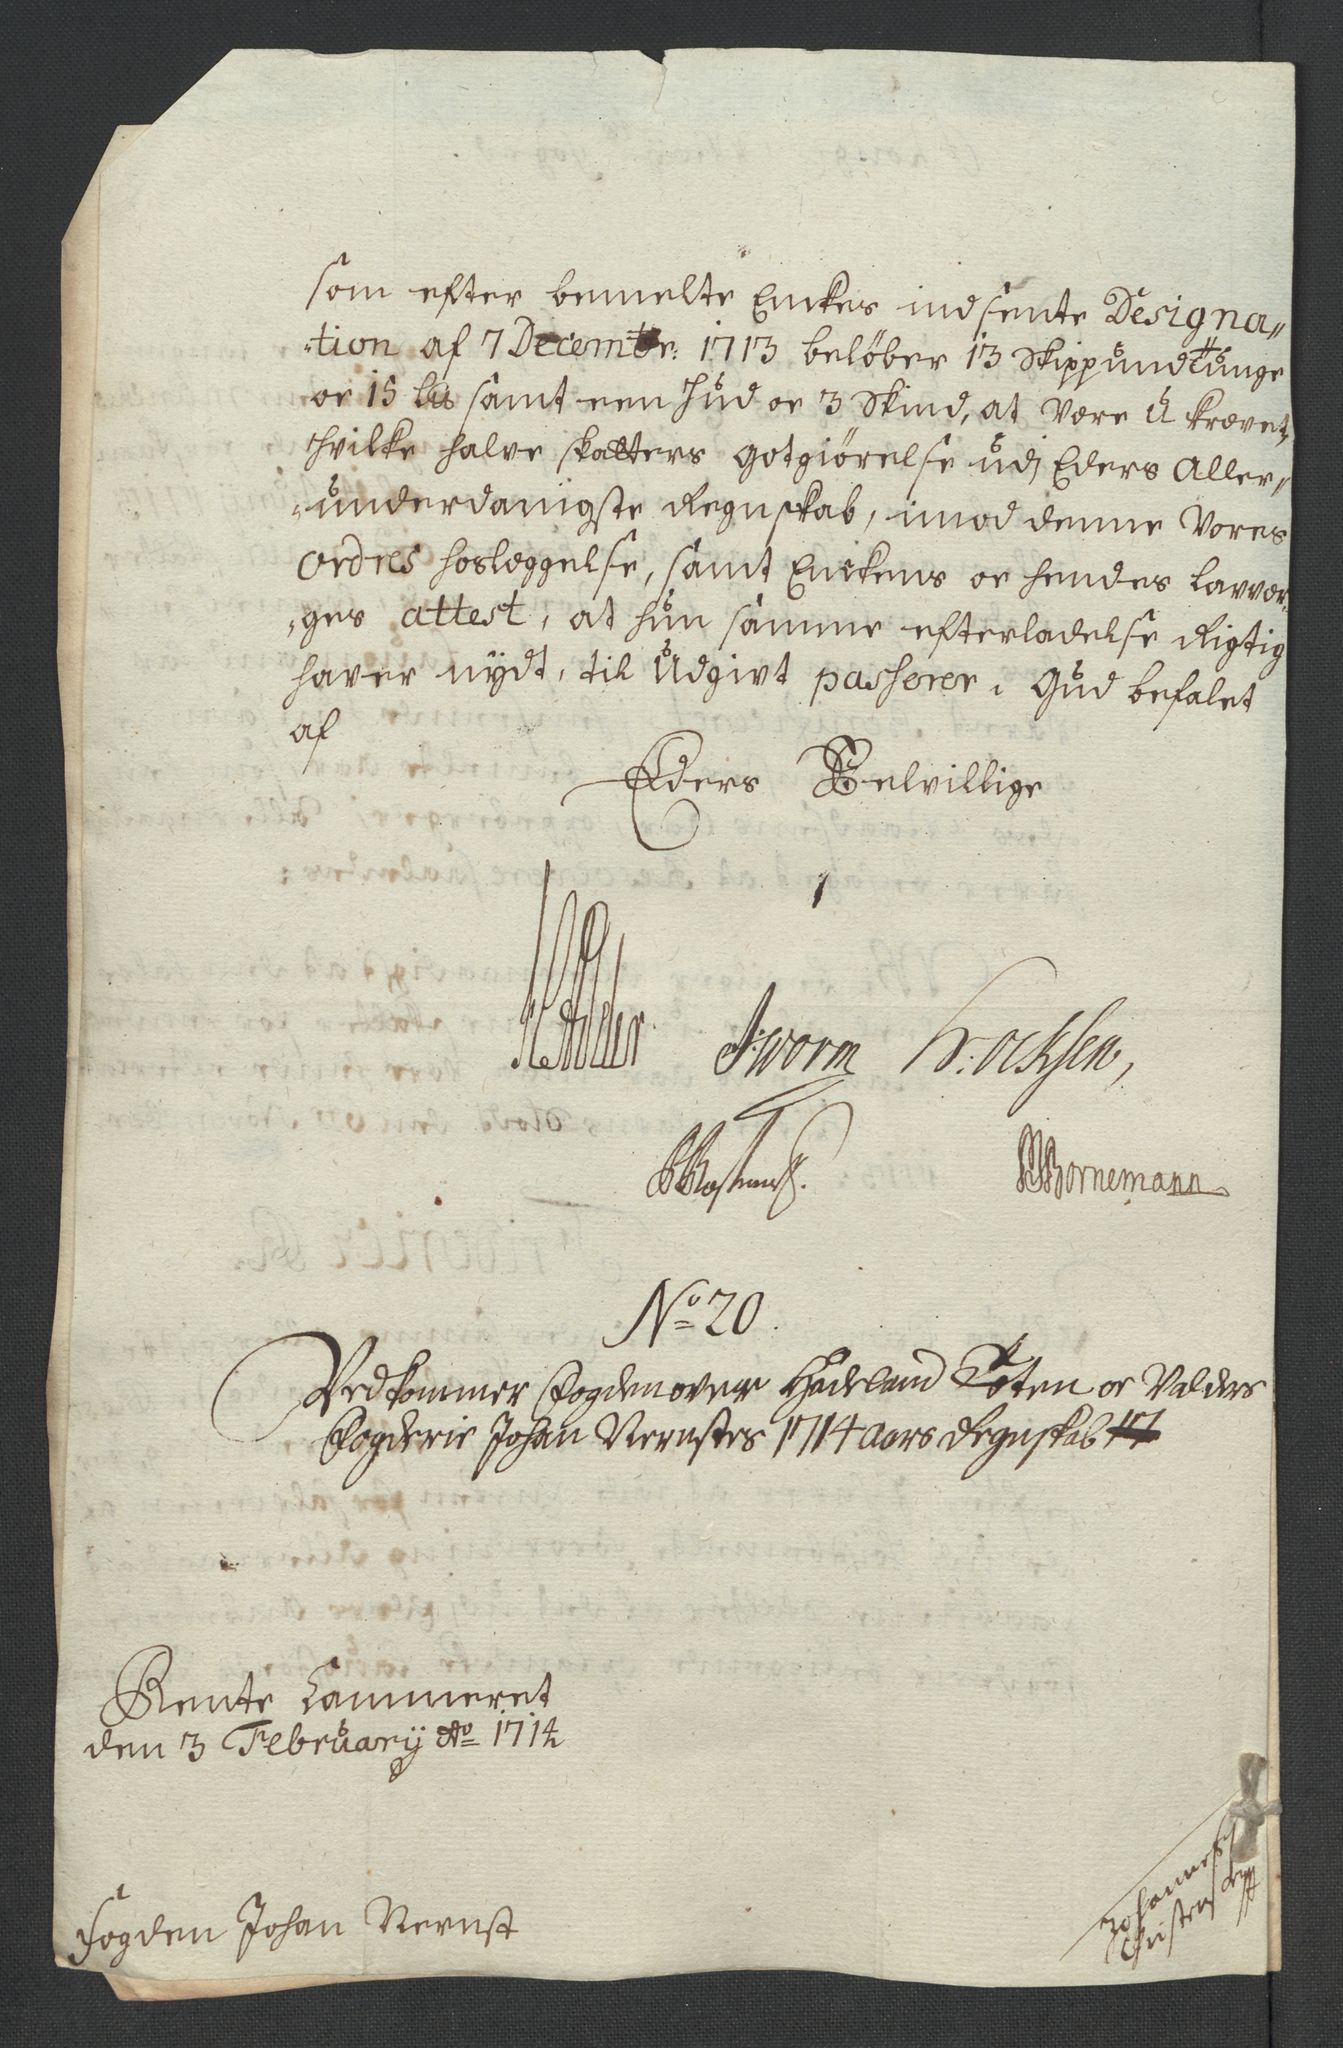 som efter bemelte Enckes indsente Designa„
„tion af 7 Decembr: 1713 beløber 13 Skippund tunge
oc 15 samt een Huud oc 3 Skind, at være ukrævet,
hvilke halve skatters gotgiørelse udj Eders Aller„
„underdanigste Regnskab, imod denne Vores
Ordres hoslæggelse, samt Enckens oc hendes Lavvær„
„ges attest, at hun samme efterladelse Rigtig
haver nydt, til Udgivt passerer. Gud befalet
af
Eders Velvillige
J: Worm
B: Bornemann
No 20.
Vedkommer Fogden over Hadeland Toten oc Valders
Fogderie Johan Nernstes 1714 aars Regnskab
Rente Cammeret
den 3 February Ao 1714
Fogden Johan Nernst
Johannes
Christens